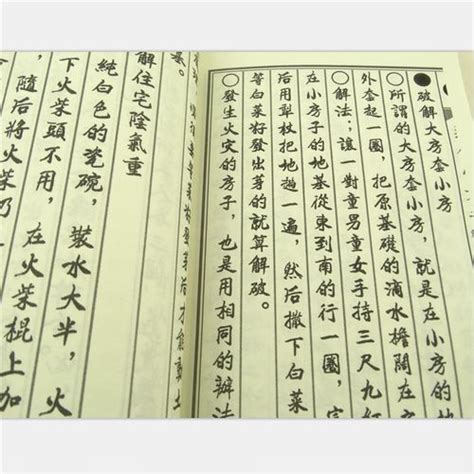 ●破解大房套小房
○所謂的大房套小房，就是在小房的地
外套起一圈，把原基礎的滴水擔闊在房
○解法；讓一對童男童女手持三尺九紅
在小房子的地基從東到南的行一圈，完
后用犁杖把地趟一遍，然后撒下白菜
等白菜籽發出芽的就算解破。
○發生火灾的房子，也是用相同的辦法
發芽后才能動土
墓。
解住宅陰氣重
純白色的瓷碗，裝水大半，火
下火柴頭不用，在火柴棍上加
，隨后將火柴扔